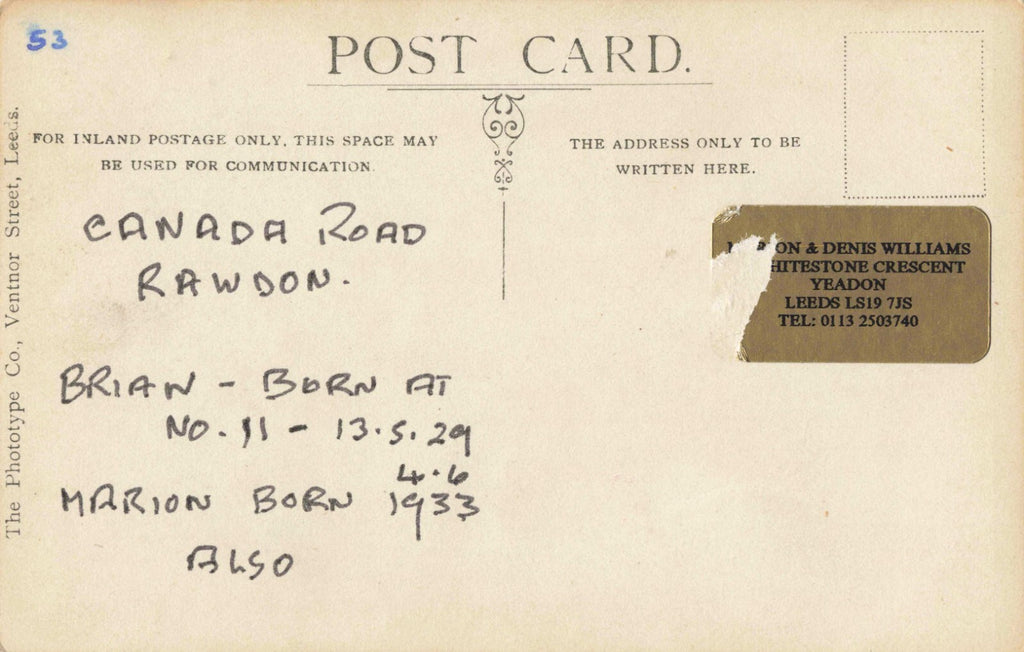 53
POST CARD.
FOR INLAND POSTAGE ONLY, THIS SPACE MAY
BE USED FOR COMMUNICATION.
THE ADDRESS ONLY TO BE
WRITTEN HERE.
The Phototype Co., Ventnor Street, Leeds.
CANADA ROAD
RAWDON.
BRIAN - BORN AT
NO. 11 - 13.5.29
4.6
MARION BORN 1933
ALSO
& DENIS WILLIAMS
CRESCENT
YEADON
LEEDS LS19 7JS
TEL: 0113 2503740